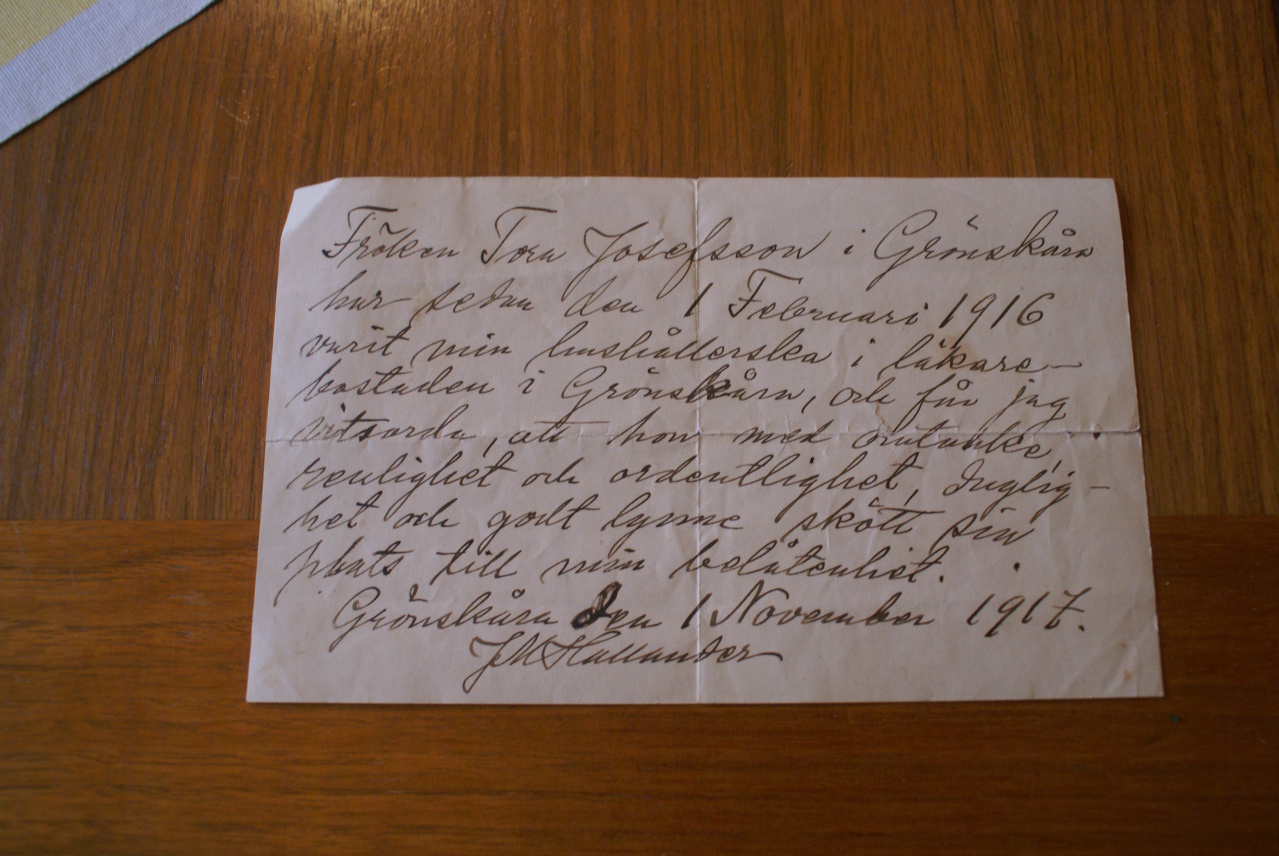 Fröken Tora Josefsson i Grönskåra
har sedan den 1 Februari 1916
varit min hushållerska i läkare-
bostaden i Grönskåra, och får jag
vitsorda, att hon med omtanke,
renlighet och ordentlighet, duglig-
het och godt lynne skött sin
plats till min belåtenhet.
Grönskåra den 1 November 1917.
J M Hallander